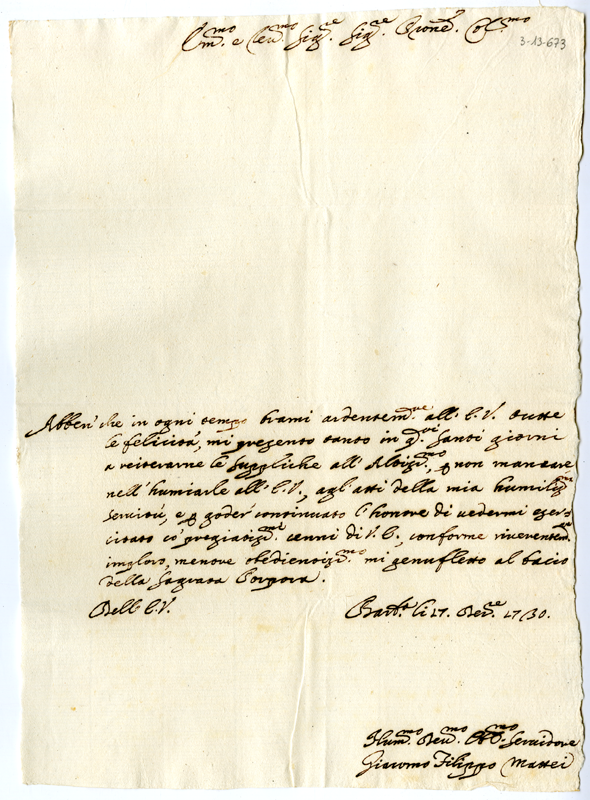 Em.mo e Rev.mo Sig.re Sig.re Prone. Col.mo
3-13-673
Abben che in ogni tempo brami ardentem.te all' E. V. tutte
le felicità, mi presento tanto in q.ti santi giorni
a reiterarne le suppliche all' Altiss.mo, p non mancare
nell' humiarle all' E. V., agl' atti della mia humiliss.ma
servitù, e p goder continuato l' honore di vedermi eser-
citato co' pregiatiss.mi cenni di V. E., conforme riverentem.te
imploro, mentre obedientiss.mo mi genufletto al bacio
della Sagrata Porpora.
Dell' E. V. li 17. 1730.
Hum.mo Dev.mo Obb.mo Servidore
Giacomo Filippo Mattei